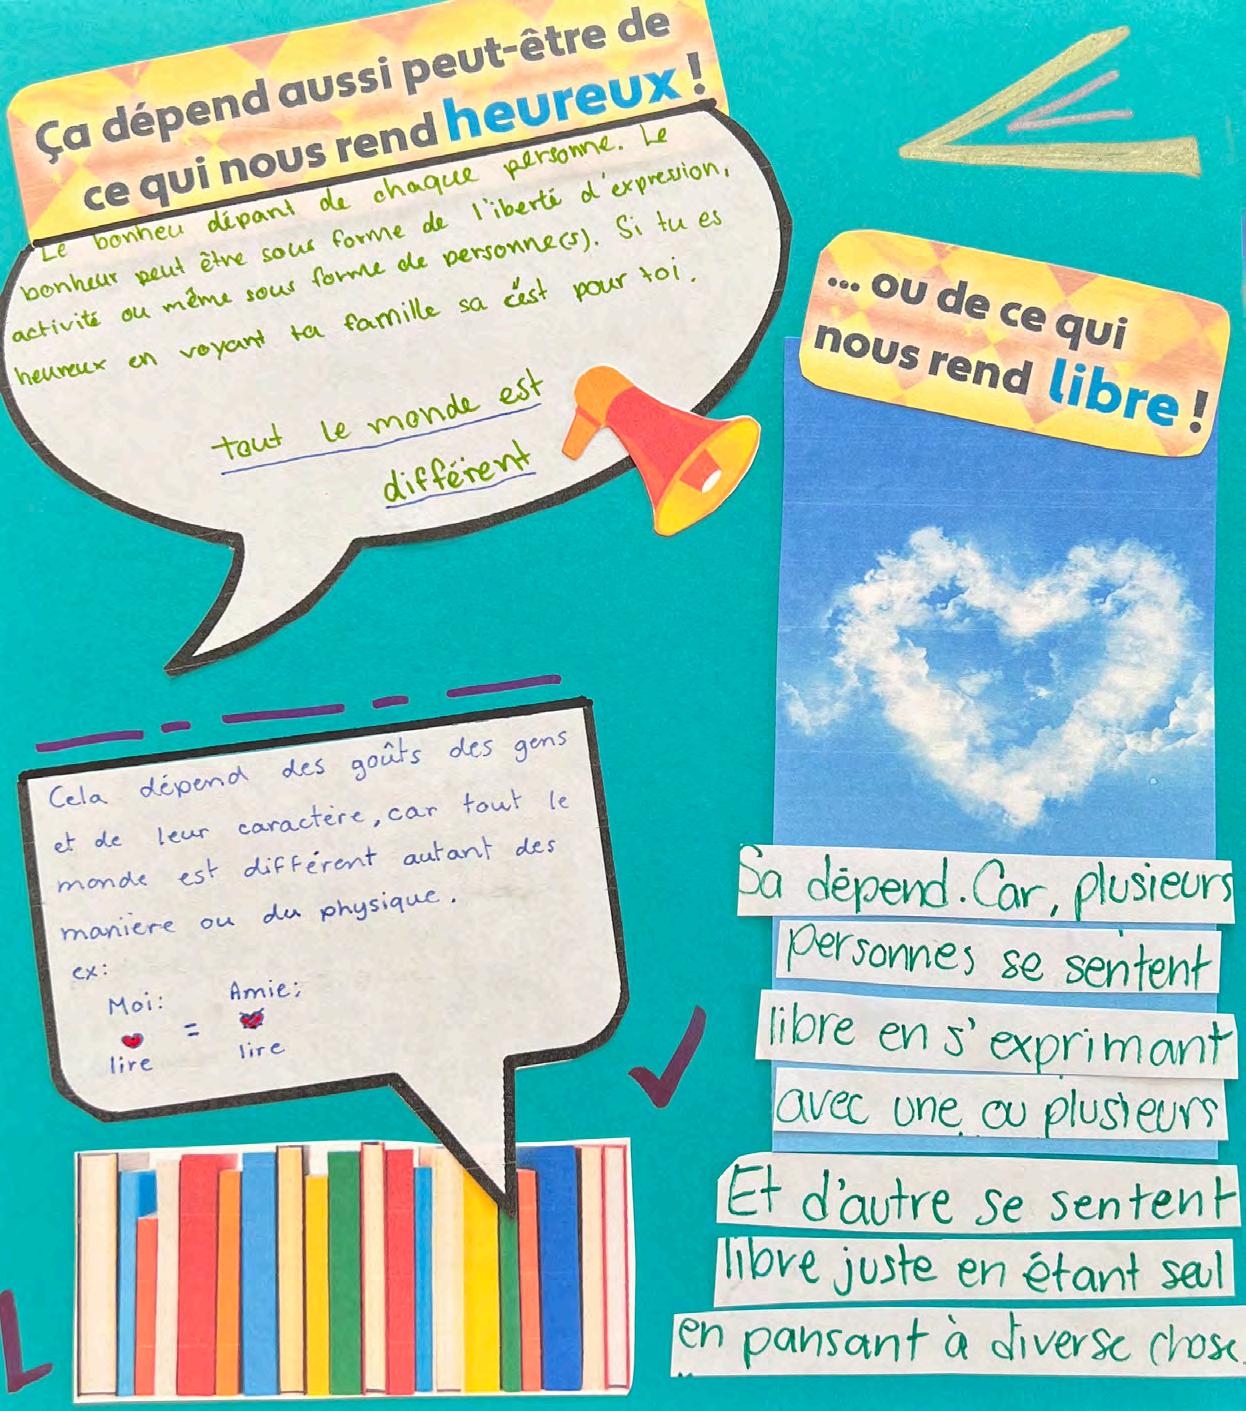 Ça dépend aussi peut-être de
ce qui nous rend heureux !
Le bonheu dépant de chaque personne. Le
bonheur peut être sous forme de l'iberté d'expression,
activité ou même sous forme de personne(s). Si tu es
heureux en voyant ta famille sa c'est pour toi.
tout le monde est
différent
... ou de ce qui
nous rend libre !
Cela dépend des goûts des gens
et de leur caractère, car tout le
monde est différent autant des
manière ou du physique.
ex:
Moi: Amie:
=
lire lire
Sa dépend. Car, plusieurs
personnes se sentent
libre en s'exprimant
avec une ou plusieurs
Et d'autre se sentent
libre juste en étant seul
en pansant à diverse chose.